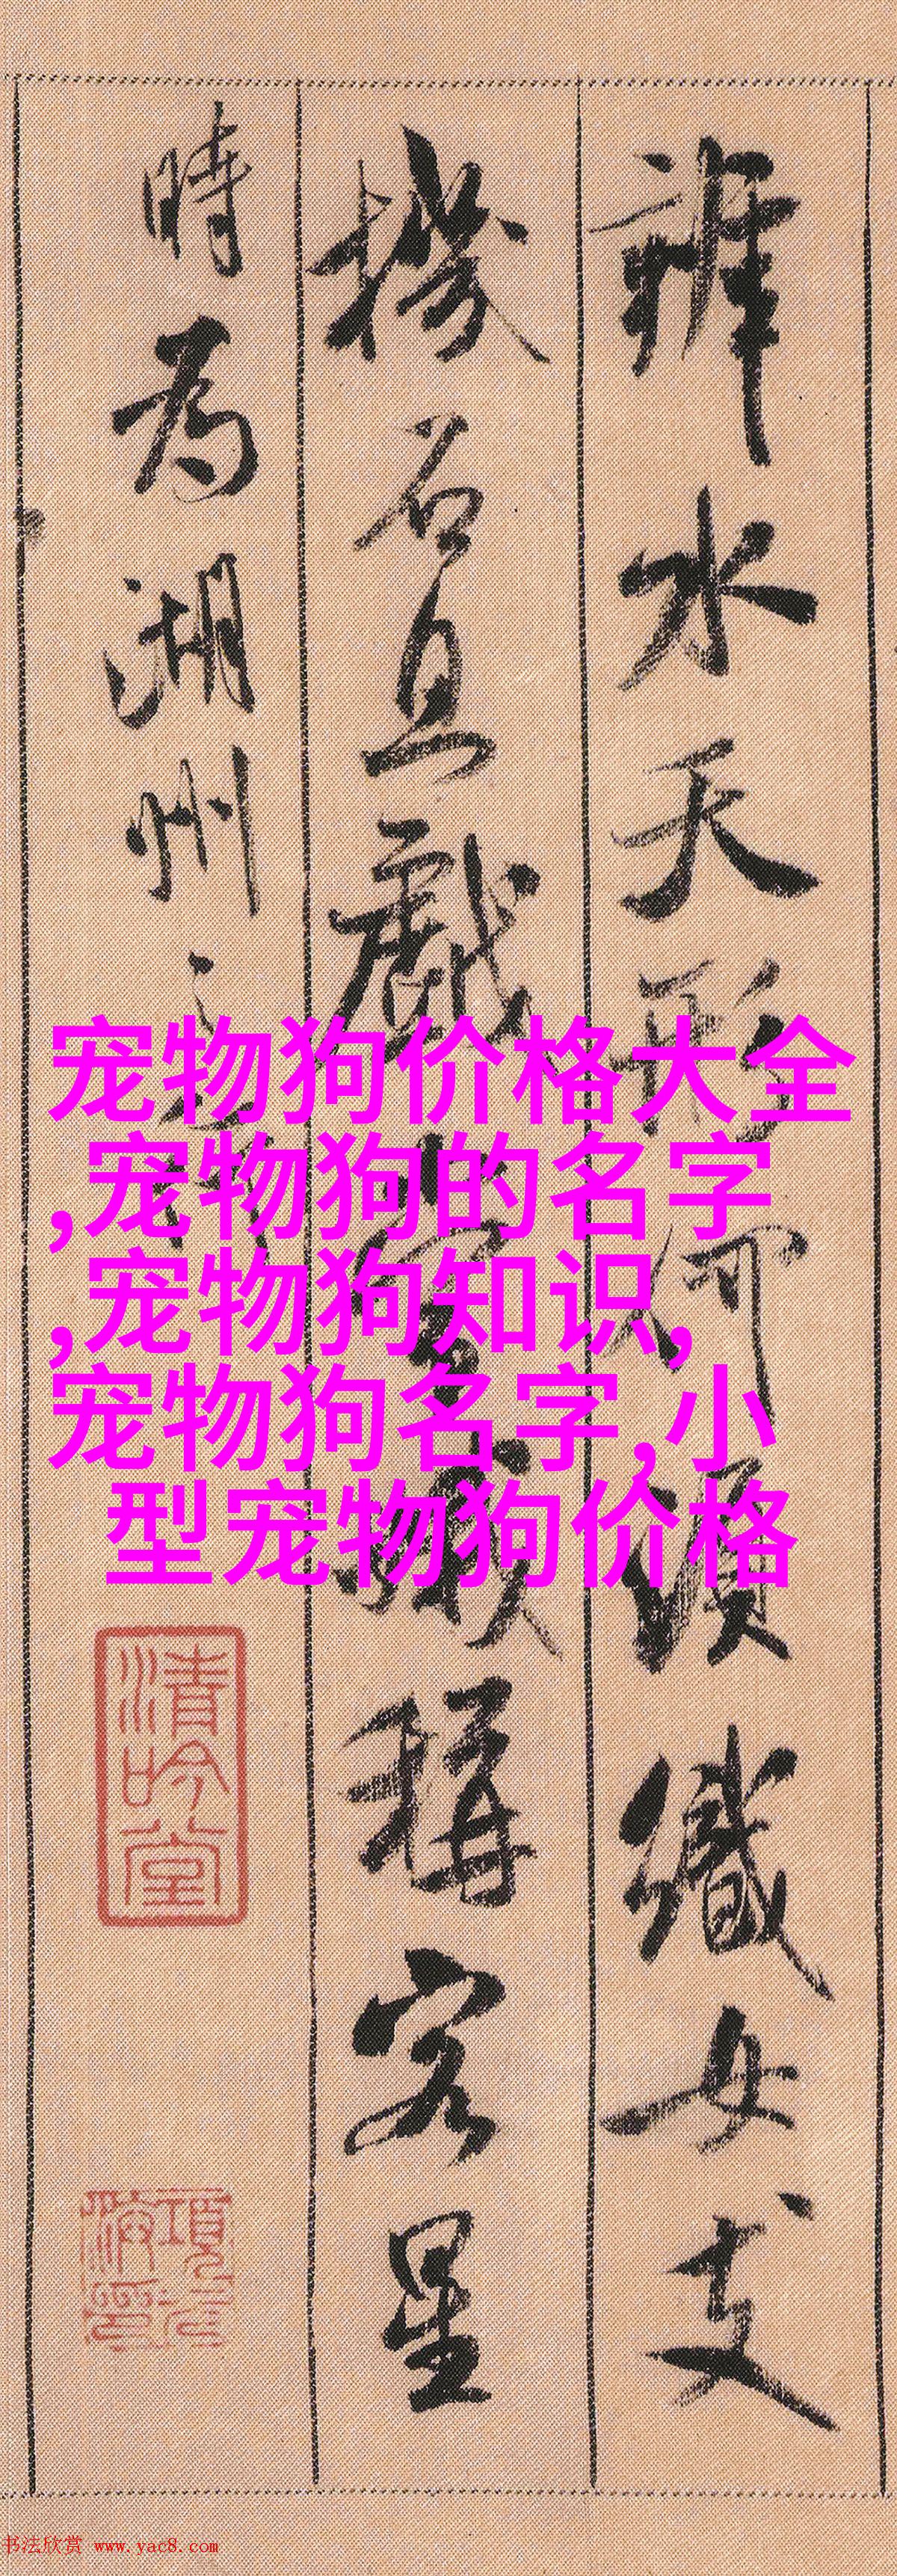 辨水天形何須織女支
機石且戲常娥稱客星
時為湖州之行
宠物狗价格大全
,宠物狗的名字
,宠物狗知识,
宠物狗名字,小
型宠物狗价格
清吟堂
书法欣赏 www.yac8.com